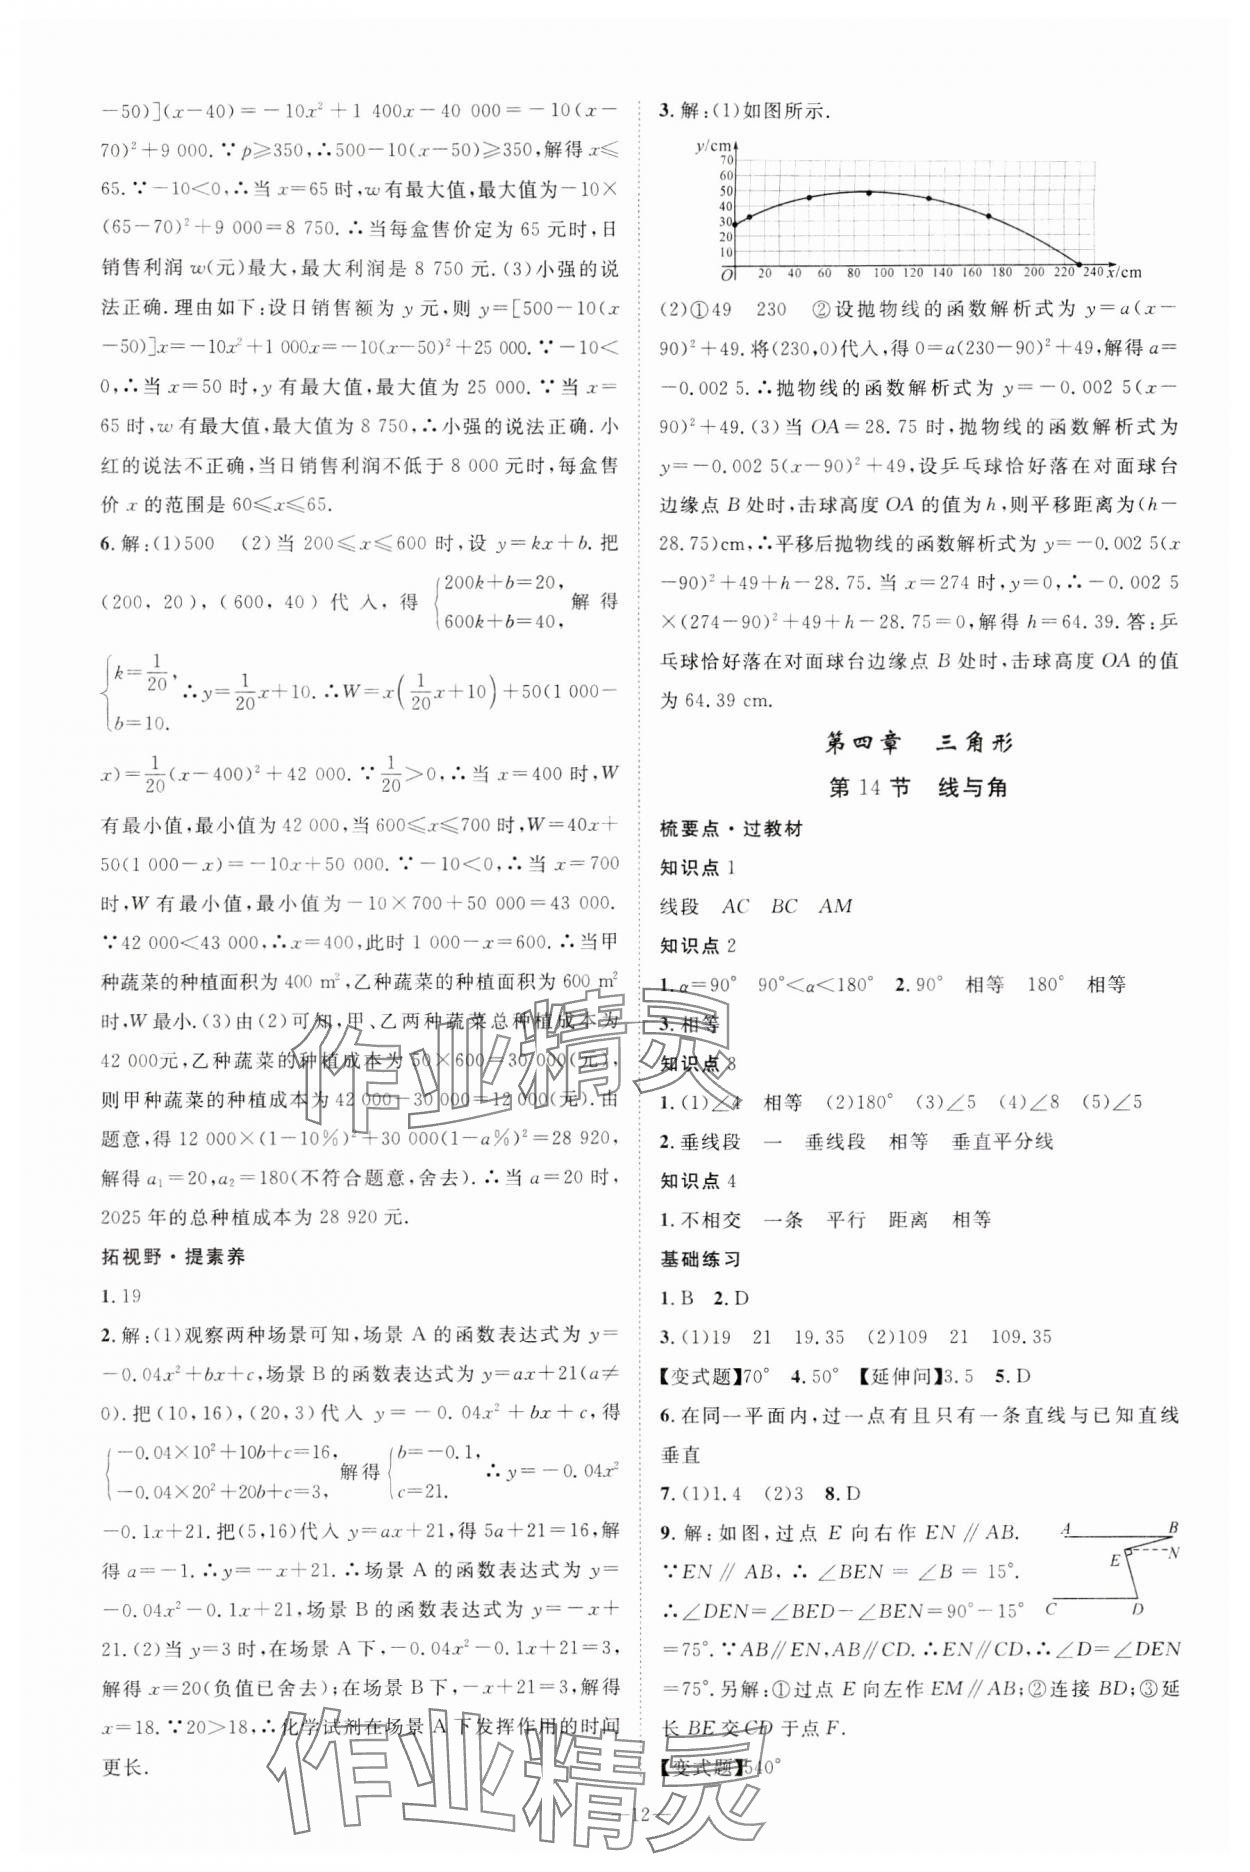 －50)](x－40)＝－10x²＋1 400x－40 000＝－10(x－
70)²＋9 000.∵p≥350,∴500－10(x－50)≥350,解得x≤
65.∵－10＜0,∴当x＝65时,w有最大值,最大值为－10×
(65－70)²＋9 000＝8 750.∴当每盒售价定为65元时,日
销售利润w(元)最大,最大利润是8 750元.(3)小强的说
法正确.理由如下:设日销售额为y元,则y＝[500－10(x
－50)]x＝－10x²＋1 000x＝－10(x－50)²＋25 000.∵－10＜
0,∴当x＝50时,y有最大值,最大值为25 000.∵当x＝
65时,w有最大值,最大值为8 750,∴小强的说法正确.小
红的说法不正确,当日销售利润不低于8 000元时,每盒售
价x的范围是60≤x≤65.
6.解:(1)500　(2)当200≤x≤600时,设y＝kx＋b.把
(200,20),(600,40)代入,得{200k＋b＝20, 600k＋b＝40,解得
{k＝1/20, b＝10. ∴y＝1/20x＋10.∴W＝x(1/20x＋10)＋50(1 000－
x)＝1/20(x－400)²＋42 000.∵1/20＞0,∴当x＝400时,W
有最小值,最小值为42 000,当600≤x≤700时,W＝40x＋
50(1 000－x)＝－10x＋50 000.∵－10＜0,∴当x＝700
时,W有最小值,最小值为－10×700＋50 000＝43 000.
∵42 000＜43 000,∴x＝400,此时1 000－x＝600.∴当甲
种蔬菜的种植面积为400 m²,乙种蔬菜的种植面积为600 m²
时,W最小.(3)由(2)可知,甲、乙两种蔬菜总种植成本为
42 000元,乙种蔬菜的种植成本为50×600＝30 000(元),
则甲种蔬菜的种植成本为42 000－30 000＝12 000(元).由
题意,得12 000×(1－10%)²＋30 000(1－a%)²＝28 920,
解得a₁＝20,a₂＝180(不符合题意,舍去).∴当a＝20时,
2025年的总种植成本为28 920元.
拓视野·提素养
1.19
2.解:(1)观察两种场景可知,场景A的函数表达式为y＝
－0.04x²＋bx＋c,场景B的函数表达式为y＝ax＋21(a≠
0).把(10,16),(20,3)代入y＝－0.04x²＋bx＋c,得
{－0.04×10²＋10b＋c＝16, －0.04×20²＋20b＋c＝3,解得{b＝－0.1, c＝21. ∴y＝－0.04x²
－0.1x＋21.把(5,16)代入y＝ax＋21,得5a＋21＝16,解
得a＝－1.∴y＝－x＋21.∴场景A的函数表达式为y＝
－0.04x²－0.1x＋21,场景B的函数表达式为y＝－x＋
21.(2)当y＝3时,在场景A下,－0.04x²－0.1x＋21＝3,
解得x＝20(负值已舍去);在场景B下,－x＋21＝3,解得
x＝18.∵20＞18,∴化学试剂在场景A下发挥作用的时间
更长.
3.解:(1)如图所示.
y/cm
70
60
50
40
30
20
10
O 20 40 60 80 100 120 140 160 180 200 220 240 x/cm
(2)①49　230　②设抛物线的函数解析式为y＝a(x－
90)²＋49.将(230,0)代入,得0＝a(230－90)²＋49,解得a＝
－0.002 5.∴抛物线的函数解析式为y＝－0.002 5(x－
90)²＋49.(3)当OA＝28.75时,抛物线的函数解析式为
y＝－0.002 5(x－90)²＋49,设乒乓球恰好落在对面球台
边缘点B处时,击球高度OA的值为h,则平移距离为(h－
28.75)cm,∴平移后抛物线的函数解析式为y＝－0.002 5(x
－90)²＋49＋h－28.75.当x＝274时,y＝0,∴－0.002 5
×(274－90)²＋49＋h－28.75＝0,解得h＝64.39.答:乒
乓球恰好落在对面球台边缘点B处时,击球高度OA的值
为64.39 cm.
第四章　三角形
第14节　线与角
梳要点·过教材
知识点1
线段　AC　BC　AM
知识点2
1.α＝90°　90°＜α＜180°　2.90°　相等　180°　相等
3.相等
知识点3
1.(1)∠4　相等　(2)180°　(3)∠5　(4)∠8　(5)∠5
2.垂线段　一　垂线段　相等　垂直平分线
知识点4
1.不相交　一条　平行　距离　相等
基础练习
1.B　2.D
3.(1)19　21　19.35　(2)109　21　109.35
【变式题】70°　4.50°　【延伸问】3.5　5.D
6.在同一平面内,过一点有且只有一条直线与已知直线
垂直
7.(1)1.4　(2)3　8.D
9.解:如图,过点E向右作EN∥AB.
∵EN∥AB,∴∠BEN＝∠B＝15°.
∴∠DEN＝∠BED－∠BEN＝90°－15°
＝75°.∵AB∥EN,AB∥CD.∴EN∥CD,∴∠D＝∠DEN
＝75°.另解:①过点E向左作EM∥AB;②连接BD;③延
长BE交CD于点F.
A B
E N
C D
【变式题】540°
—12—
作业精灵
作业精灵